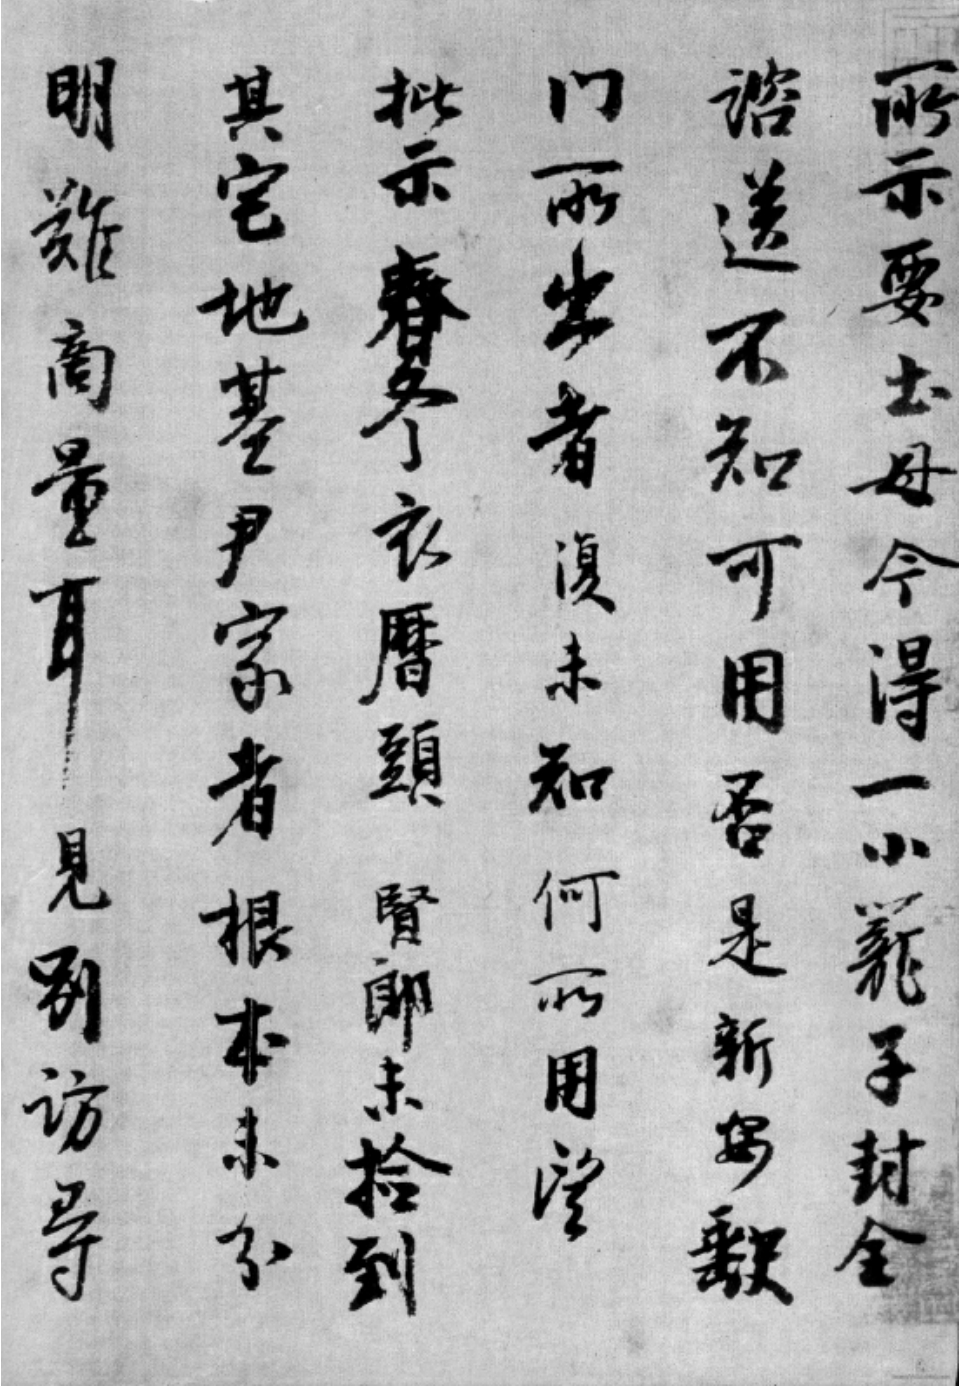 所示要土母今得一小籠子封全
諮送不知可用否是新安缺
门所出者復未知何所用望
批示春冬衣曆頭賢郎未拾到
其宅地基尹家者根本未分
明難商量耳見別訪尋